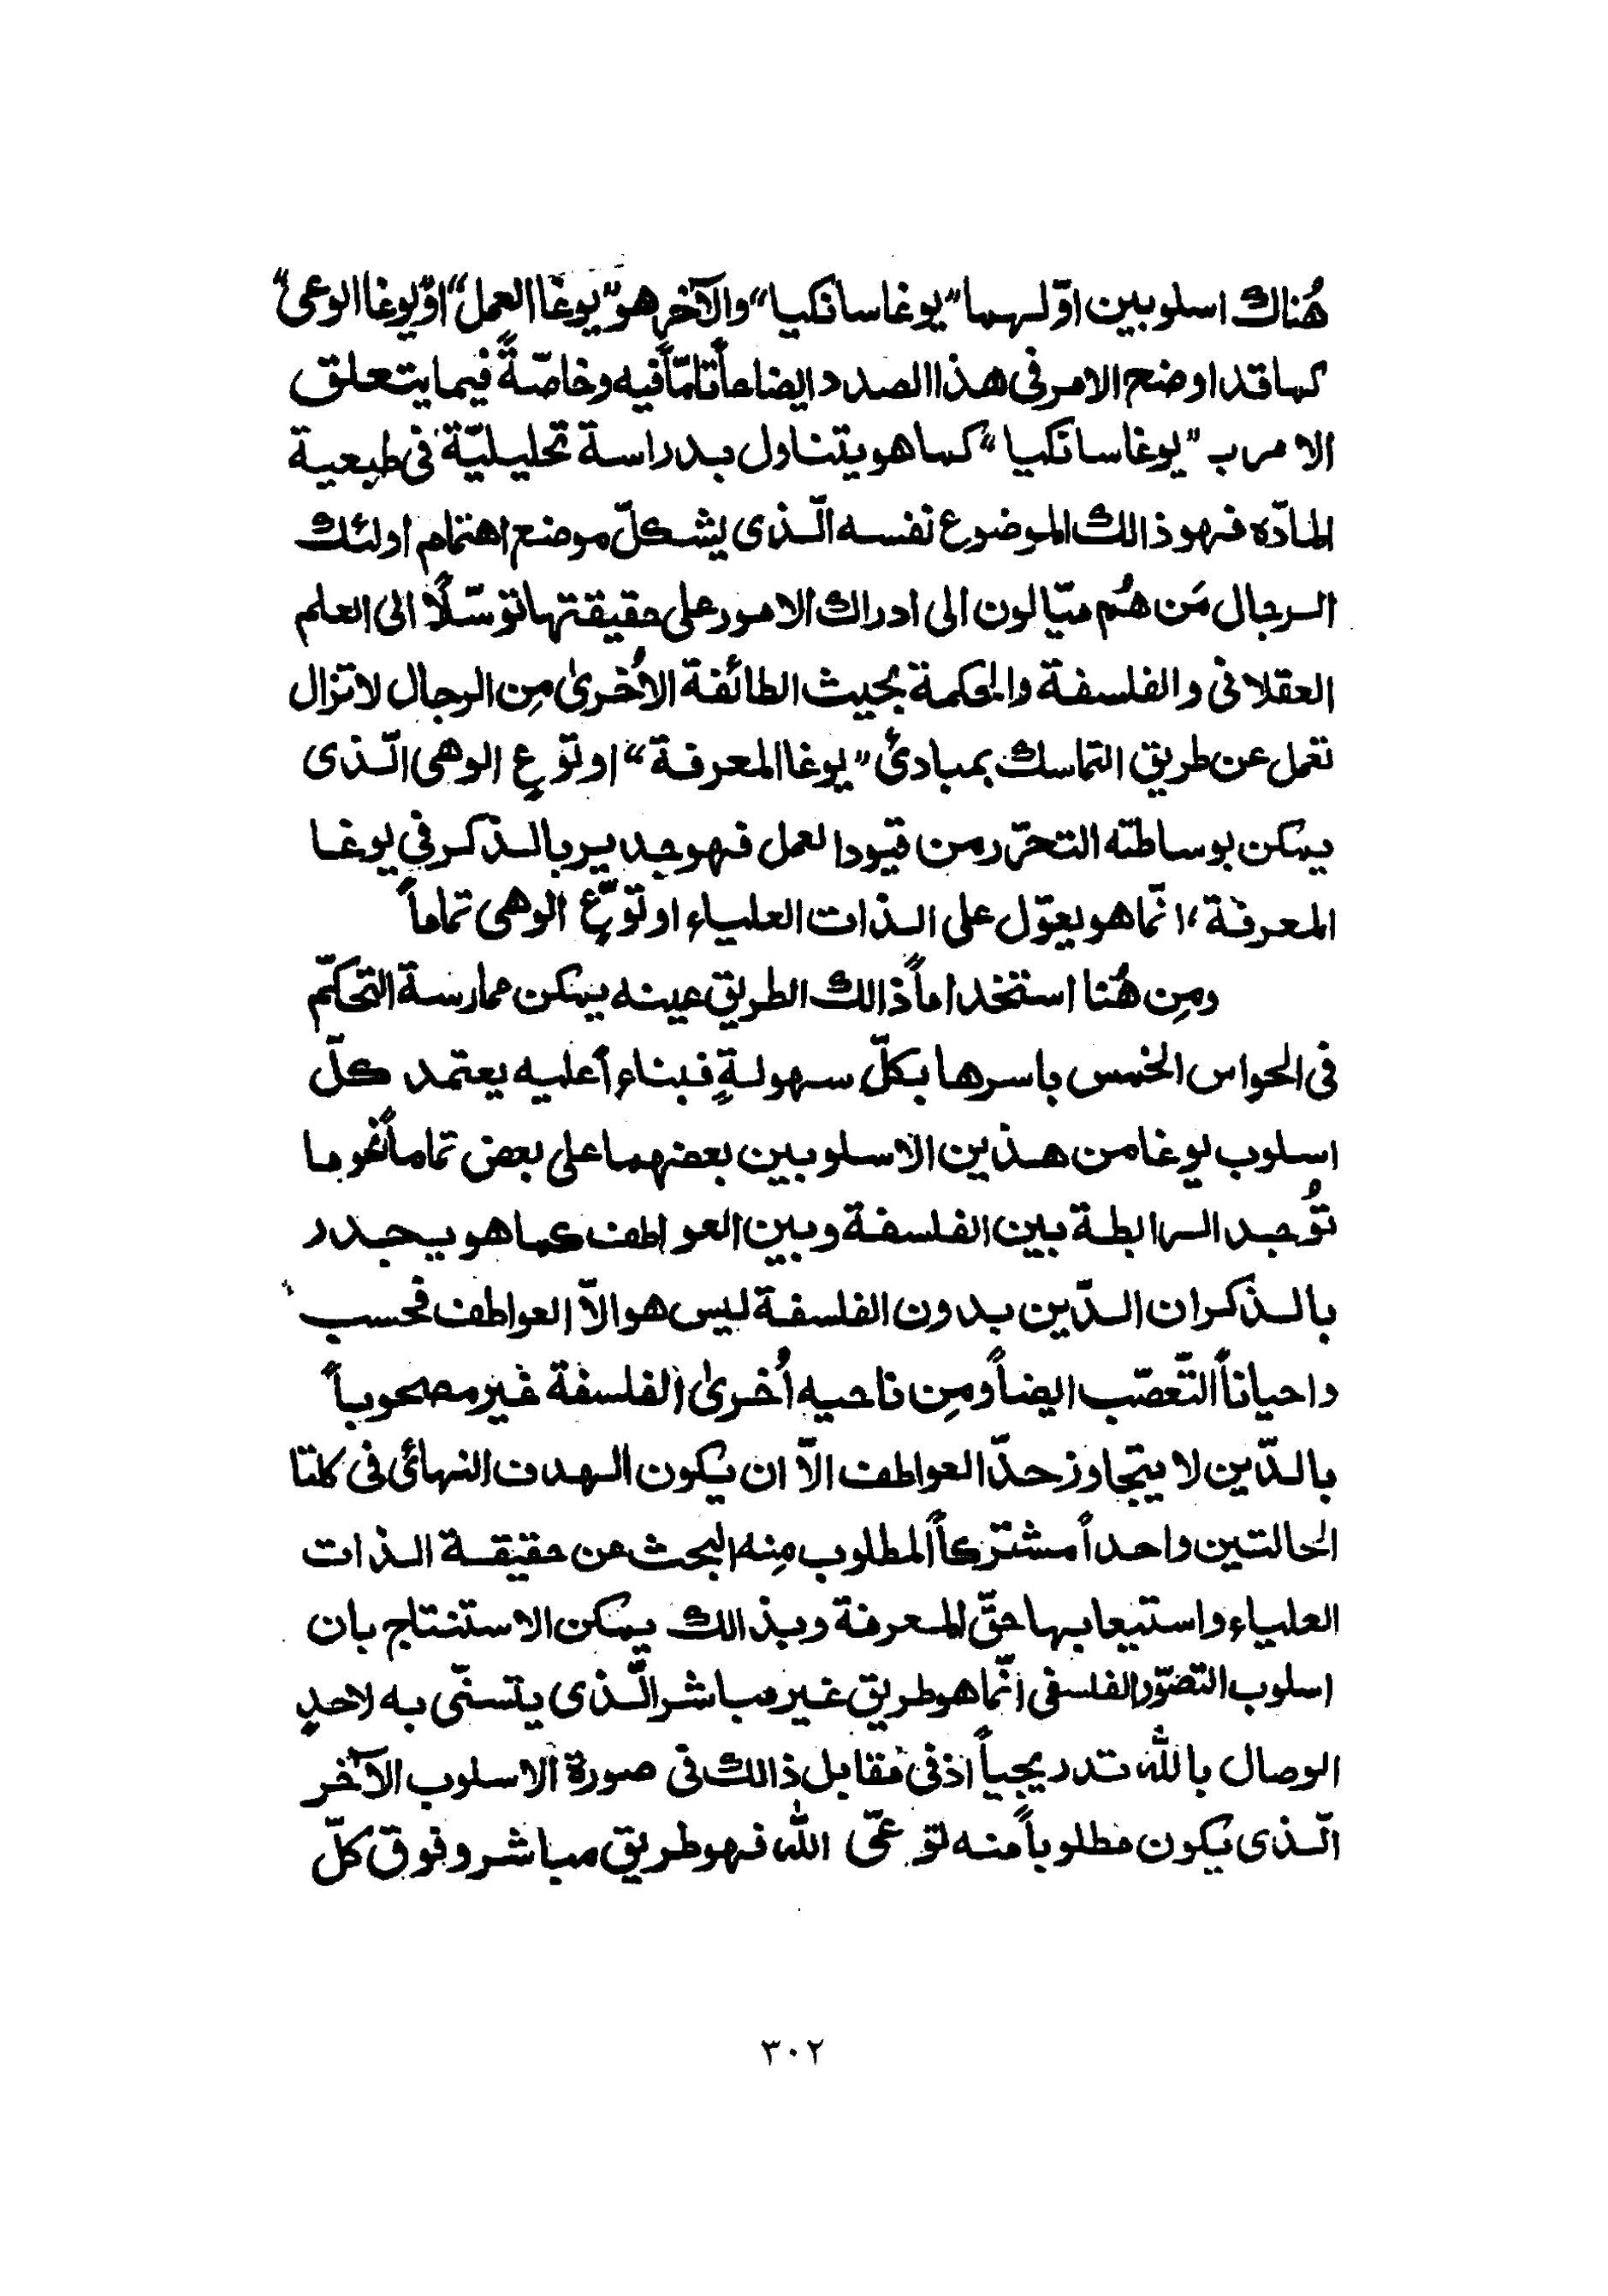 هُناك اسلوبين اوّلهما "يوغا سانكيا" والآخر هو "يوغا العمل" او "يوغا الوعى"
كما قد اوضح الامر فى هذا الصدد ايضاحاً تامّاً فيه وخاصّةً فيما يتعلق
الامر ب "يوغا سانكيا" كما هو يتناول بدراسة تحليليّة فى طبعية
المادّه فهو ذالك الموضوع نفسه الّذى يشكلّ موضع اهتمام اولئك
الرجال مَن هُم ميّالون الى ادراك الامور على حقيقتها توسّلًا الى العلم
العقلانى والفلسفة والحكمة بحيث الطائفة الاُخرىٰ مِن الرجال لاتزال
تعمل عن طريق التماسك بمبادئ "يوغا المعرفة" او توّعٍ الوهى الّذى
يمكن بوساطته التحرّر من قيود العمل فهو جدير بالذكر في يوغا
المعرفة، انّما هو يعوّل على الذات العلياء او توّعٍ الوهى تماماً
ومِن هُنا استخداماً ذالك الطريق عينه يمكن ممارسة التحكّم
فى الحواس الخمس باسرها بكلّ سهولةٍ فبناءاً عليه يعتمد كلّ
اسلوب يوغا من هذين الاسلوبين بعضهما على بعض تماماً نحوما
تُوجد الرابطة بين الفلسفة وبين العواطف كما هو يجدر
بالذكر ان الدّين بدون الفلسفة ليس هو الاّ العواطف فحسب
واحياناً التّعصّب ايضاً ومِن ناحيه اُخرىٰ الفلسفة غير مصحوباً
بالدّين لا يتجاوز حدّ العواطف الاّ ان يكون الهدف النهائى فى كلتا
الحالتين واحداً مشتركاً المطلوب مِنه البحث عن حقيقة الذات
العلياء واستيعابها حقّ المعرفة وبذالك يمكن الاستنتاج بان
اسلوب التصوّر الفلسفى انّما هو طريق غير مباشر الّذى يتسنّى به لاحدٍ
الوصال بالله تدريجياً اذ فى مقابل ذالك فى صورة الاسلوب الآخر
الّذى يكون مطلوباً منه لتوعّى الله فهو طريق مباشر وفوق كلّ
٣٠٢